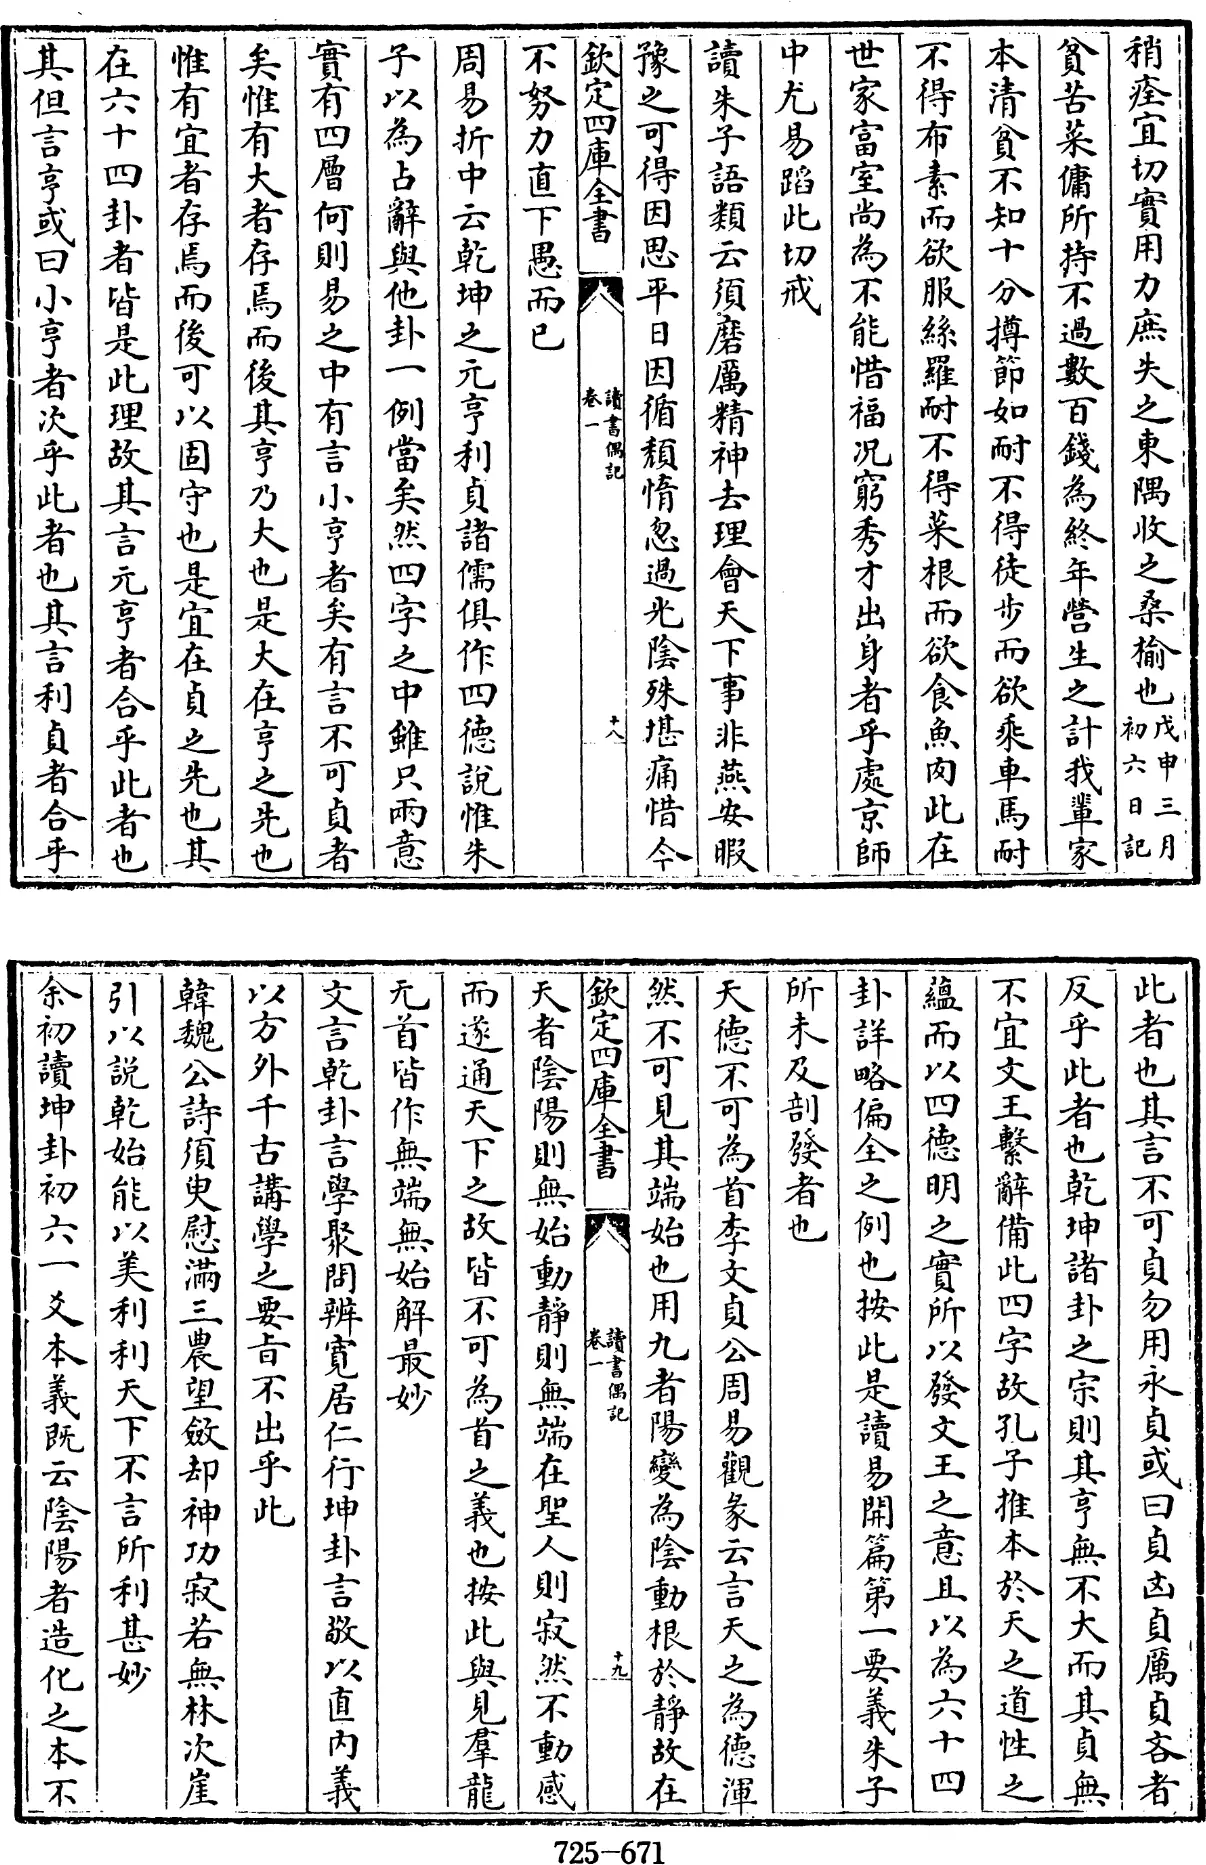 稍痊宜切實用力庶失之東隅收之桑榆也戊申三月初六日記
貧苦菜傭所持不過數百錢為終年營生之計我輩家
本清貧不知十分撙節如耐不得徒步而欲乘車馬耐
不得布素而欲服絲羅耐不得菜根而欲食魚肉此在
世家富室尚為不能惜福况窮秀才出身者乎處京師
中尤易蹈此切戒
讀朱子語類云須磨厲精神去理會天下事非燕安暇
豫之可得因思平日因循頹惰忽過光陰殊堪痛惜今
欽定四庫全書 讀書偶記 卷一 十八
不努力直下愚而已
周易折中云乾坤之元亨利貞諸儒俱作四德說惟朱
子以為占辭與他卦一例當矣然四字之中雖只兩意
實有四層何則易之中有言小亨者矣有言不可貞者
矣惟有大者存焉而後其亨乃大也是大在亨之先也
惟有宜者存焉而後可以固守也是宜在貞之先也其
在六十四卦者皆是此理故其言元亨者合乎此者也
其但言亨或曰小亨者次乎此者也其言利貞者合乎
此者也其言不可貞勿用永貞或曰貞凶貞厲貞吝者
反乎此者也乾坤諸卦之宗則其亨無不大而其貞無
不宜文王繫辭備此四字故孔子推本於天之道性之
蘊而以四德明之實所以發文王之意且以為六十四
卦詳略偏全之例也按此是讀易開篇第一要義朱子
所未及剖發者也
天德不可為首李文貞公周易觀彖云言天之為德渾
然不可見其端始也用九者陽變為陰動根於靜故在
欽定四庫全書 讀書偶記 卷一 十九
天者陰陽則無始動靜則無端在聖人則寂然不動感
而遂通天下之故皆不可為首之義也按此與見羣龍
无首皆作無端無始解最妙
文言乾卦言學聚問辨寬居仁行坤卦言敬以直內義
以方外千古講學之要旨不出乎此
韓魏公詩須臾慰滿三農望斂却神功寂若無林次崖
引以説乾始能以美利利天下不言所利甚妙
余初讀坤卦初六一爻本義既云陰陽者造化之本不
725-671